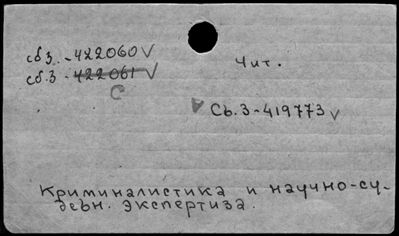 сб3. - 422060 V
Чит.
сб.3 - 422061 V
С
Сь.3-419773 V
Криминалистика и научно-су-
дебн. экспертиза.